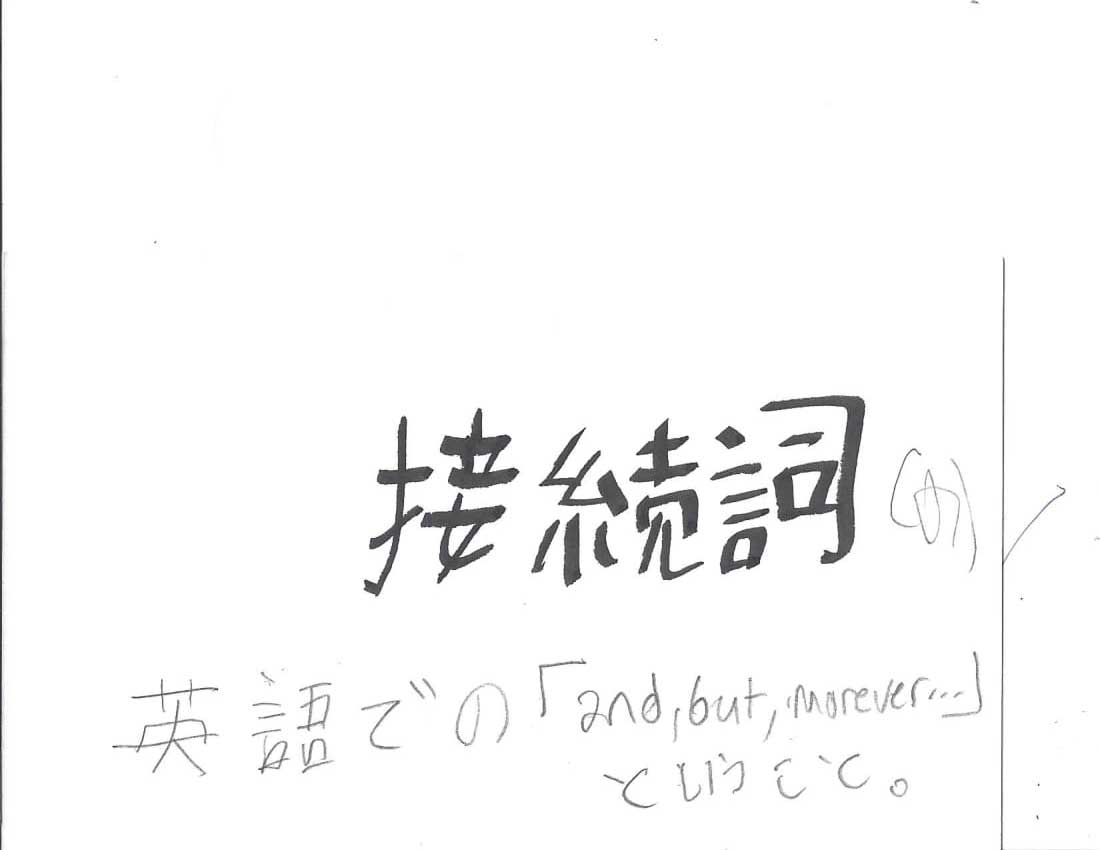 接続詞(の)
英語での「and, but, morever...」
ということ。